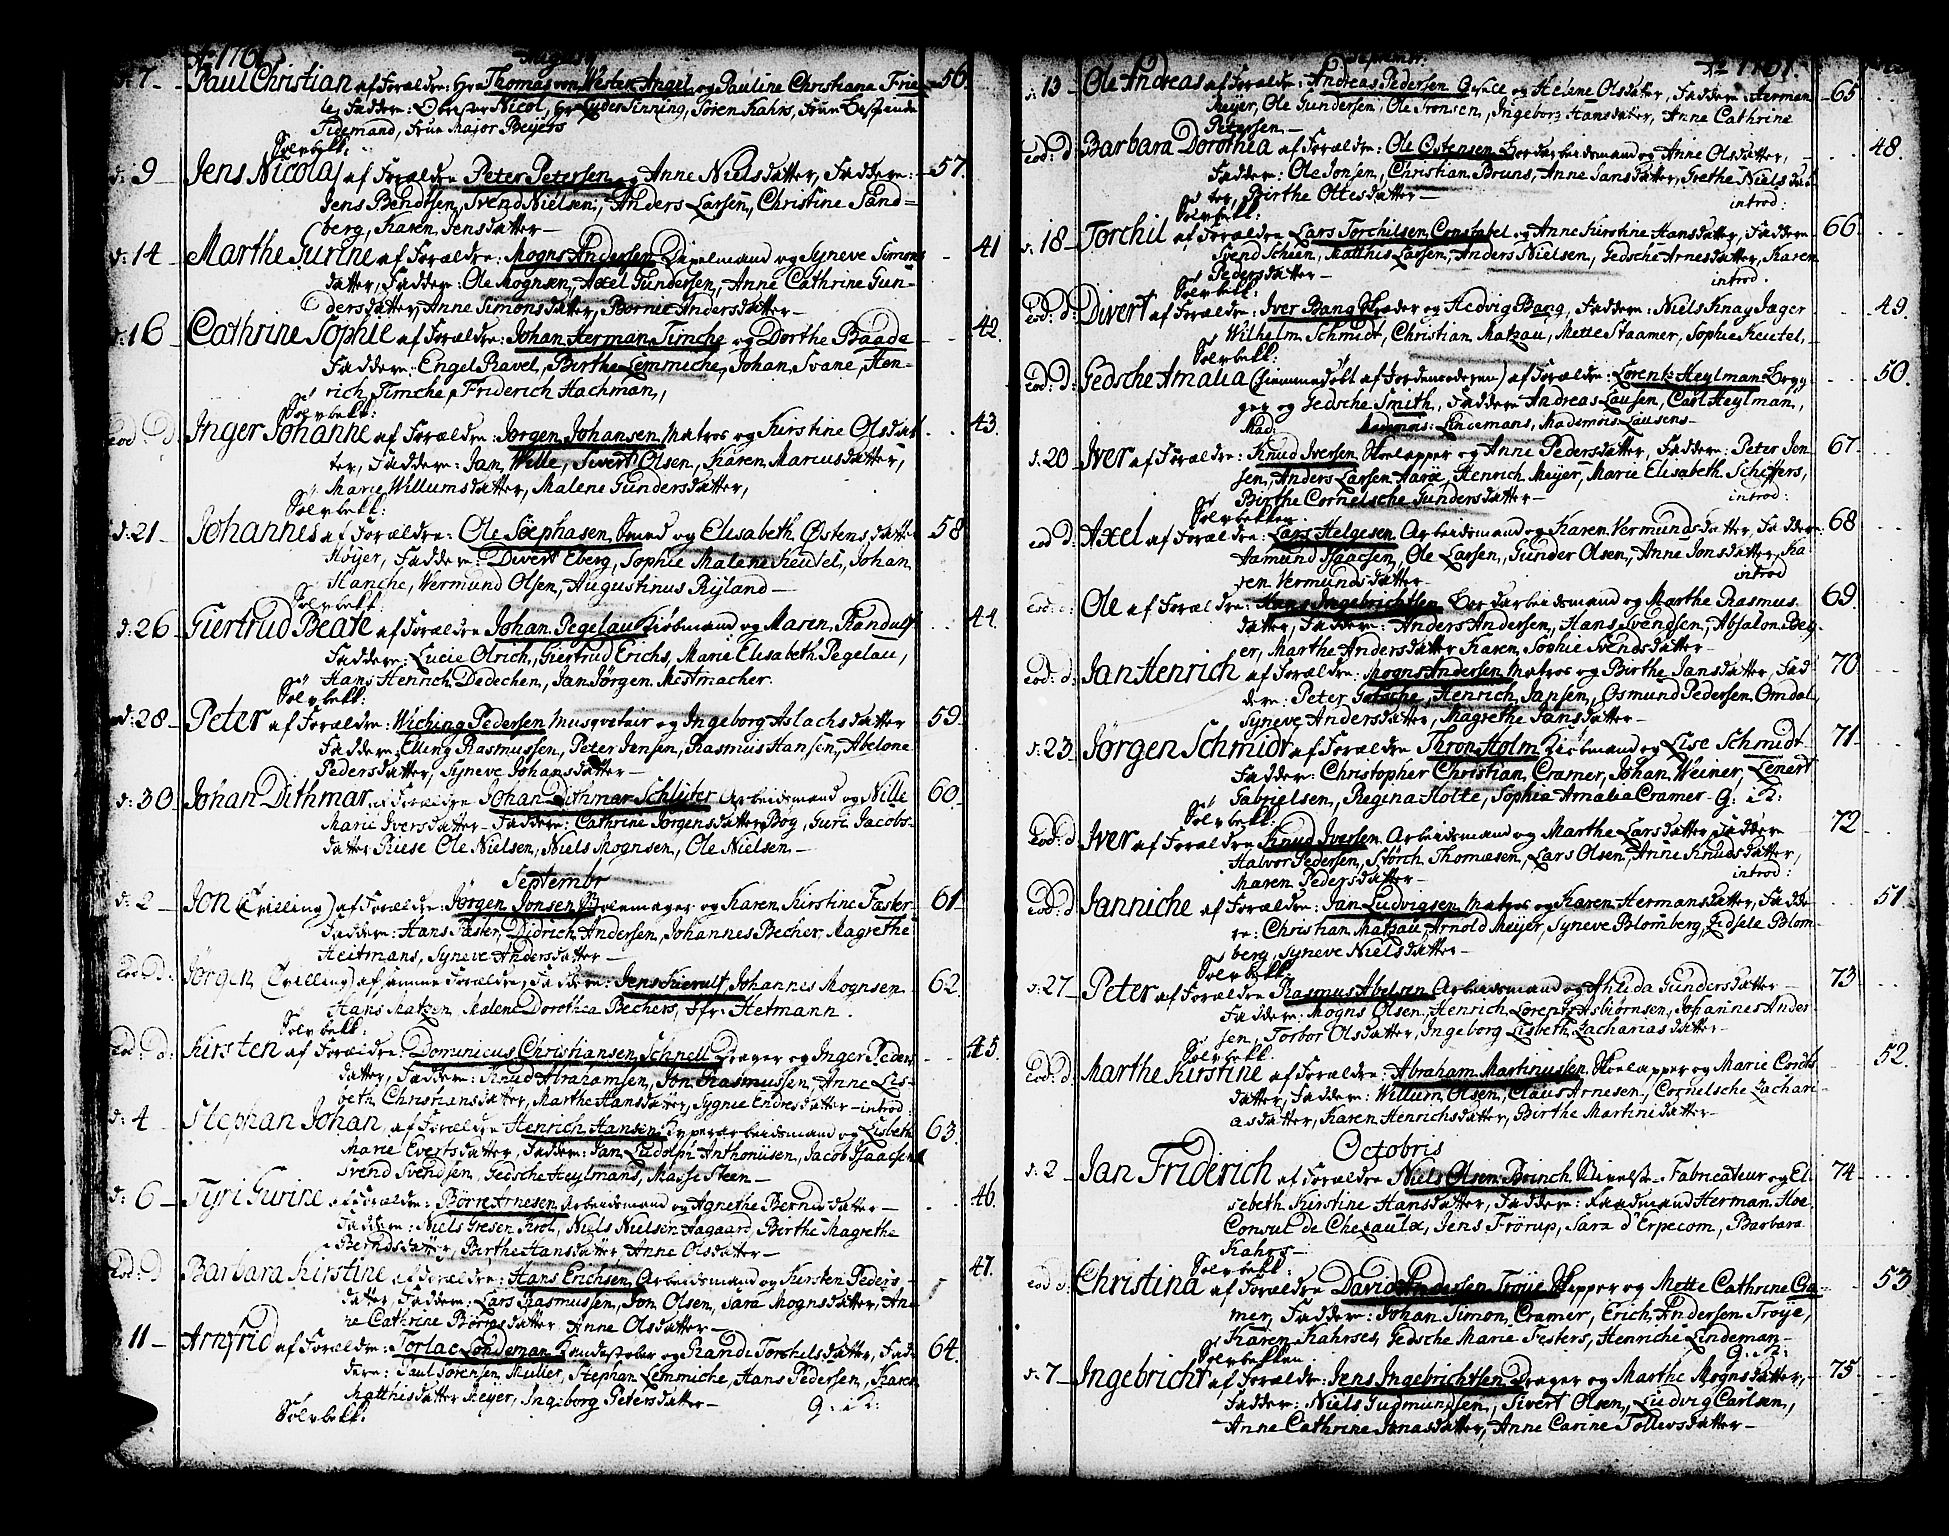 Ao 1761. August
d: 7 Paul Christian af Forældre: Hr Thomas von Westen Angel og Pauline Christiana Frie- 56.
le, Faddere: Obrister Nicol, Hr Lyder Finning, Søren Kahrs, Frue
Tidemand, Frue Major Beyers
Sølvbell:
d: 9 Jens Nicolaj af Forældre Peter Petersen og Anne Nielsdatter, Faddere: 57.
Jens Bendtsen, Svend Nielsen, Anders Larsen, Christine Sand-
berg, Karen Jensdatter
d: 14 Marthe Gurine af Forældre: Mogns Andersen og Syneve Simons 41
datter, Faddere: Ole Mognsen, Axel Gundersen, Anne Cathrine Gun-
dersdatter, Anne Simonsdatter, Børnie Andersdatter
d: 16 Cathrine Sophie af Forældre: Johan Herman Timche og Dorthe Baade 42.
Faddere: Engel Ravel, Birthe Lemmiche, Johan Svane, Hen-
rich Timche, Friderich Hachman,
Sølvbell:
Eod: D: Inger Johanne af Forældre: Jørgen Johansen Matros og Kirstine Olsdat 43.
ter, Faddere: Jan Wille, Sivert Olsen, Karen Mariusdatter,
Marie Willumsdatter, Malene Gundersdatter,
Sølvbell:
d: 21 Johannes af Forældre: Ole Søephasen Smed og Elisabeth Østensdatt 58
Høyer, Faddere: Divert Eberg, Sophie Malene Keutel, Johan
Hanche, Vermund Olsen, Augustinus Ryland
Sølvbell:
d: 26 Giertrud Beate af Forældre Johan Pegelau Kiøbmand og Maren Randulf 44.
Faddere: Lucie Olrich, Giertrud Erichs, Marie Elisabeth Pegelau,
Hans Henrich Dedechen, Jan Jørgen Mestmacher.
Sølvbell:
d: 28 Peter af Forældre: Wiching Pedersen Musqvetair og Ingeborg Aslachsdatter 59.
Faddere: Elling Rasmussen, Peter Jensen, Rasmus Hansen, Abelone
Pedersdatter, Syneve Johansdatter
d: 30 Johan Dithmar af Forældre Johan Dithmar Schlüter Arbeidsmand og Nille 60.
Marie Iversdatter Faddere: Cathrine Jørgensdatter Bøg, Guri Jacobs-
datter Riese Ole Nielsen, Niels Mognsen, Ole Nielsen
Septembr
d: 2 Jon (Tvilling) af Forældre: Jørgen Jonsen og Karen Kirstine Faster 61
Faddere: Hans Faster, Didrich Andersen, Johannes Becher, Magrethe
Heitmans, Syneve Andersdatter
Eod D: Jørgen (Tvilling) af samme Forældre, Faddere: Jens Kierulf, Johannes Mognsen 62.
Hans Matzen, Malene Dorothea Bechers, Hetmann.
Sølvbell:
Eod: D: Kirsten af Forældre: Dominicus Christiansen Schnell Drager og Inger Peders 45.
datter, Faddere: Knud Abrahamsen, Jon Rasmussen, Anne Lis-
beth Christiansdatter, Marthe Hansdatter, Sygnie Endresdatter introd:
d: 4 Stephan Johan af Forældre Henrich Hansen og Lisbeth 63.
Marie Evertsdatter, Faddere: Jan Ludolph Anthonissen, Jacob Isaachsen
Svend Svendsen, Gedsche Heylmans, Masse Steen
d: 6 Tyri Gurine af Forældre: Børre Arnesen Arbeidsmand og Agnethe Berndsdatter 46.
Faddere: Niels Gresen Krol, Niels Nielsen Aagaard, Birthe Magrethe
Berndsdatter, Birthe Hansdatter, Anne Olsdatter
Eod: D Barbara Kirstine af Forældre: Hans Erichsen Arbeidsmand og Kirsten Peders 47.
datter, Faddere: Lars Rasmussen, Jon Olsen, Sara Mognsdatter, An-
ne Cathrine Børresdatter, Anne Olsdatter
11 Arnfrid af Forældre: Torlac Londeman og Randi Torchelsdatter, Fad- 64.
dere: Paul Sørensen Muller, Stephan Lemmiche, Hans Pedersen, Karen
Matthisdatter Meyer, Ingeborg Petersdatter
Sølvbell:
Septembr: Ao 1761.
d: 13 Ole Andreas af Forældre: Andreas Pedersen og Helene Olsdatter, Faddere: Herman 65
Meyer, Ole Gundersen, Ole Tronsen, Ingeborg Hansdatter, Anne Cathrine
Petersen
Eod: D: Barbara Dorothea af Forældre: Ole Ostensen Bordarbeidsmand og Anne Olsdatter, 48.
Faddere: Ole Jonsen, Christian Bruns, Anne Jansdatter, Grethe Nielsdat
ter, Birthe Ottesdatter introd:
Sølvbell:
d: 18 Torchil af Forældre Lars Torchilsen Constabel og Anne Kirstine Hansdatter, Faddere 66
Svend Scheen, Matthis Larsen, Anders Nielsen, Gedsche Arnesdatter, Karen
Pedersdatter introd:
Sølvbell:
Eod: D: Divert af Forældre: Iver Bang og Hedvig Bang, Faddere: Niels Knay Jæger 49.
Wilhelm Schmidt, Christian Matzau, Mette Staamer, Sophie Keutel,
Sølvbell:
Eod: D: Gedsche Amalia (hiemmedøbt af Jordemoderen) af Forældre: Lorentz Heylman Bryg 50.
ger og Gedsche Smith, Faddere Andreas Lausen, Carl Heylman,
Mad: Lindemans, Mademois: Lausens
d: 20 Iver af Forældre: Knud Iversen og Anne Pedersdatter, Faddere: Peter Jon 67
sen, Anders Larsen Aarøe, Henrich Meyer, Marie Elisabeth Scheffers,
Birthe Cornelsche Gundersdatter introd:
Sølvbellen
eod D: Axel af Forældre: Lars Helgesen Arbeidsmand og Karen Vermundsdatter, Faddere 68
Aamund Isaacsen, Ole Larsen, Gunder Olsen, Anne Jonsdatter, Ka
ren Vermundsdatter introd
Eod: Ole af Forældre: Hans Ingebrichtsen Bordarbeidsmand og Marthe Rasmus 69.
datter, Faddere: Anders Andersen, Hans Svendsen, Absalon Bey-
er, Marthe Andersdatter Karen Sophie Svendsdatter
Eod: D: Jan Henrich af Forældre: Mogns Andersen Matros og Birthe Jansdatter, Fad 70
dere: Peter Getsche, Henrich Jansen, Osmund Pedersen Omdal,
Syneve Andersdatter, Magrethe Jansdatter
d: 23 Jørgen Schmidt af Forældre Thron Holm Kiøbmand og Lise Schmidt 71
Faddere: Christopher Christian Cramer, Johan Weiner, Lenert
Gabrielsen, Regina Holte, Sophia Amalia Cramer
Sølvbell:
Eod: D Iver af Forældre Knud Iversen Arbeidsmand og Marthe Larsdatter, Faddere 72
Halvor Pedersen, Storch Thomæsen, Lars Olsen, Anne Knudsdatter,
Maren Pedersdatter introd:
Eod: D Janniche af Forældre: Jan Ludvigsen Matros og Karen Hermansdatter, Fadde 51
re: Christian Matzau, Arnold Meyer, Syneve Blomberg, Edsele Blom-
berg, Syneve Nielsdatter
Sølvbell
d: 27 Peter af Forældre Rasmus Abelsen Arbeidsmand og Ahlida Gundersdatter 73
Faddere: Mogns Olsen, Henrich Lorentz Asbiørnsen, Johannes Ander
sen, Torbor Olsdatter, Ingeborg Lisbeth Zachariasdatter
Sølvbell:
Eod: D Marthe Kirstine af Forældre: Abraham Martinussen og Marie Cordts 52.
datter, Faddere: Willum Olsen, Claus Arnesen, Cornelsche Zachari-
asdatter, Karen Henrichsdatter, Birthe Martinidatter
Octobris
d: 2 Jan Friderich af Forældre Niels Olsen Brinch Fabricateur og El 74
sebeth Kirstine Hansdatter, Faddere: Raadmand Herman Hoe
Consul de Chezaulx, Jens Frörup, Sara d'Erpecom, Barbara
Kahrs
Sølvbell:
eod d: Christina af Forældre David Andersen Troye og Mette Cathrine Cra- 53
mer, Faddere: Johan Simon Cramer, Erich Andersen Troye,
Karen Kahrses, Gedsche Marie Festers, Henriche Lindeman
Sølvbellen
d: 7 Ingebricht af Forældre: Jens Ingebrichtsen Drager og Marthe Mognsdatter, 75
Faddere: Niels Gudmundsen, Sivert Olsen, Ludvig Carlsen,
Anne Cathrine Jonasdatter, Anne Carine Tollevsdatter